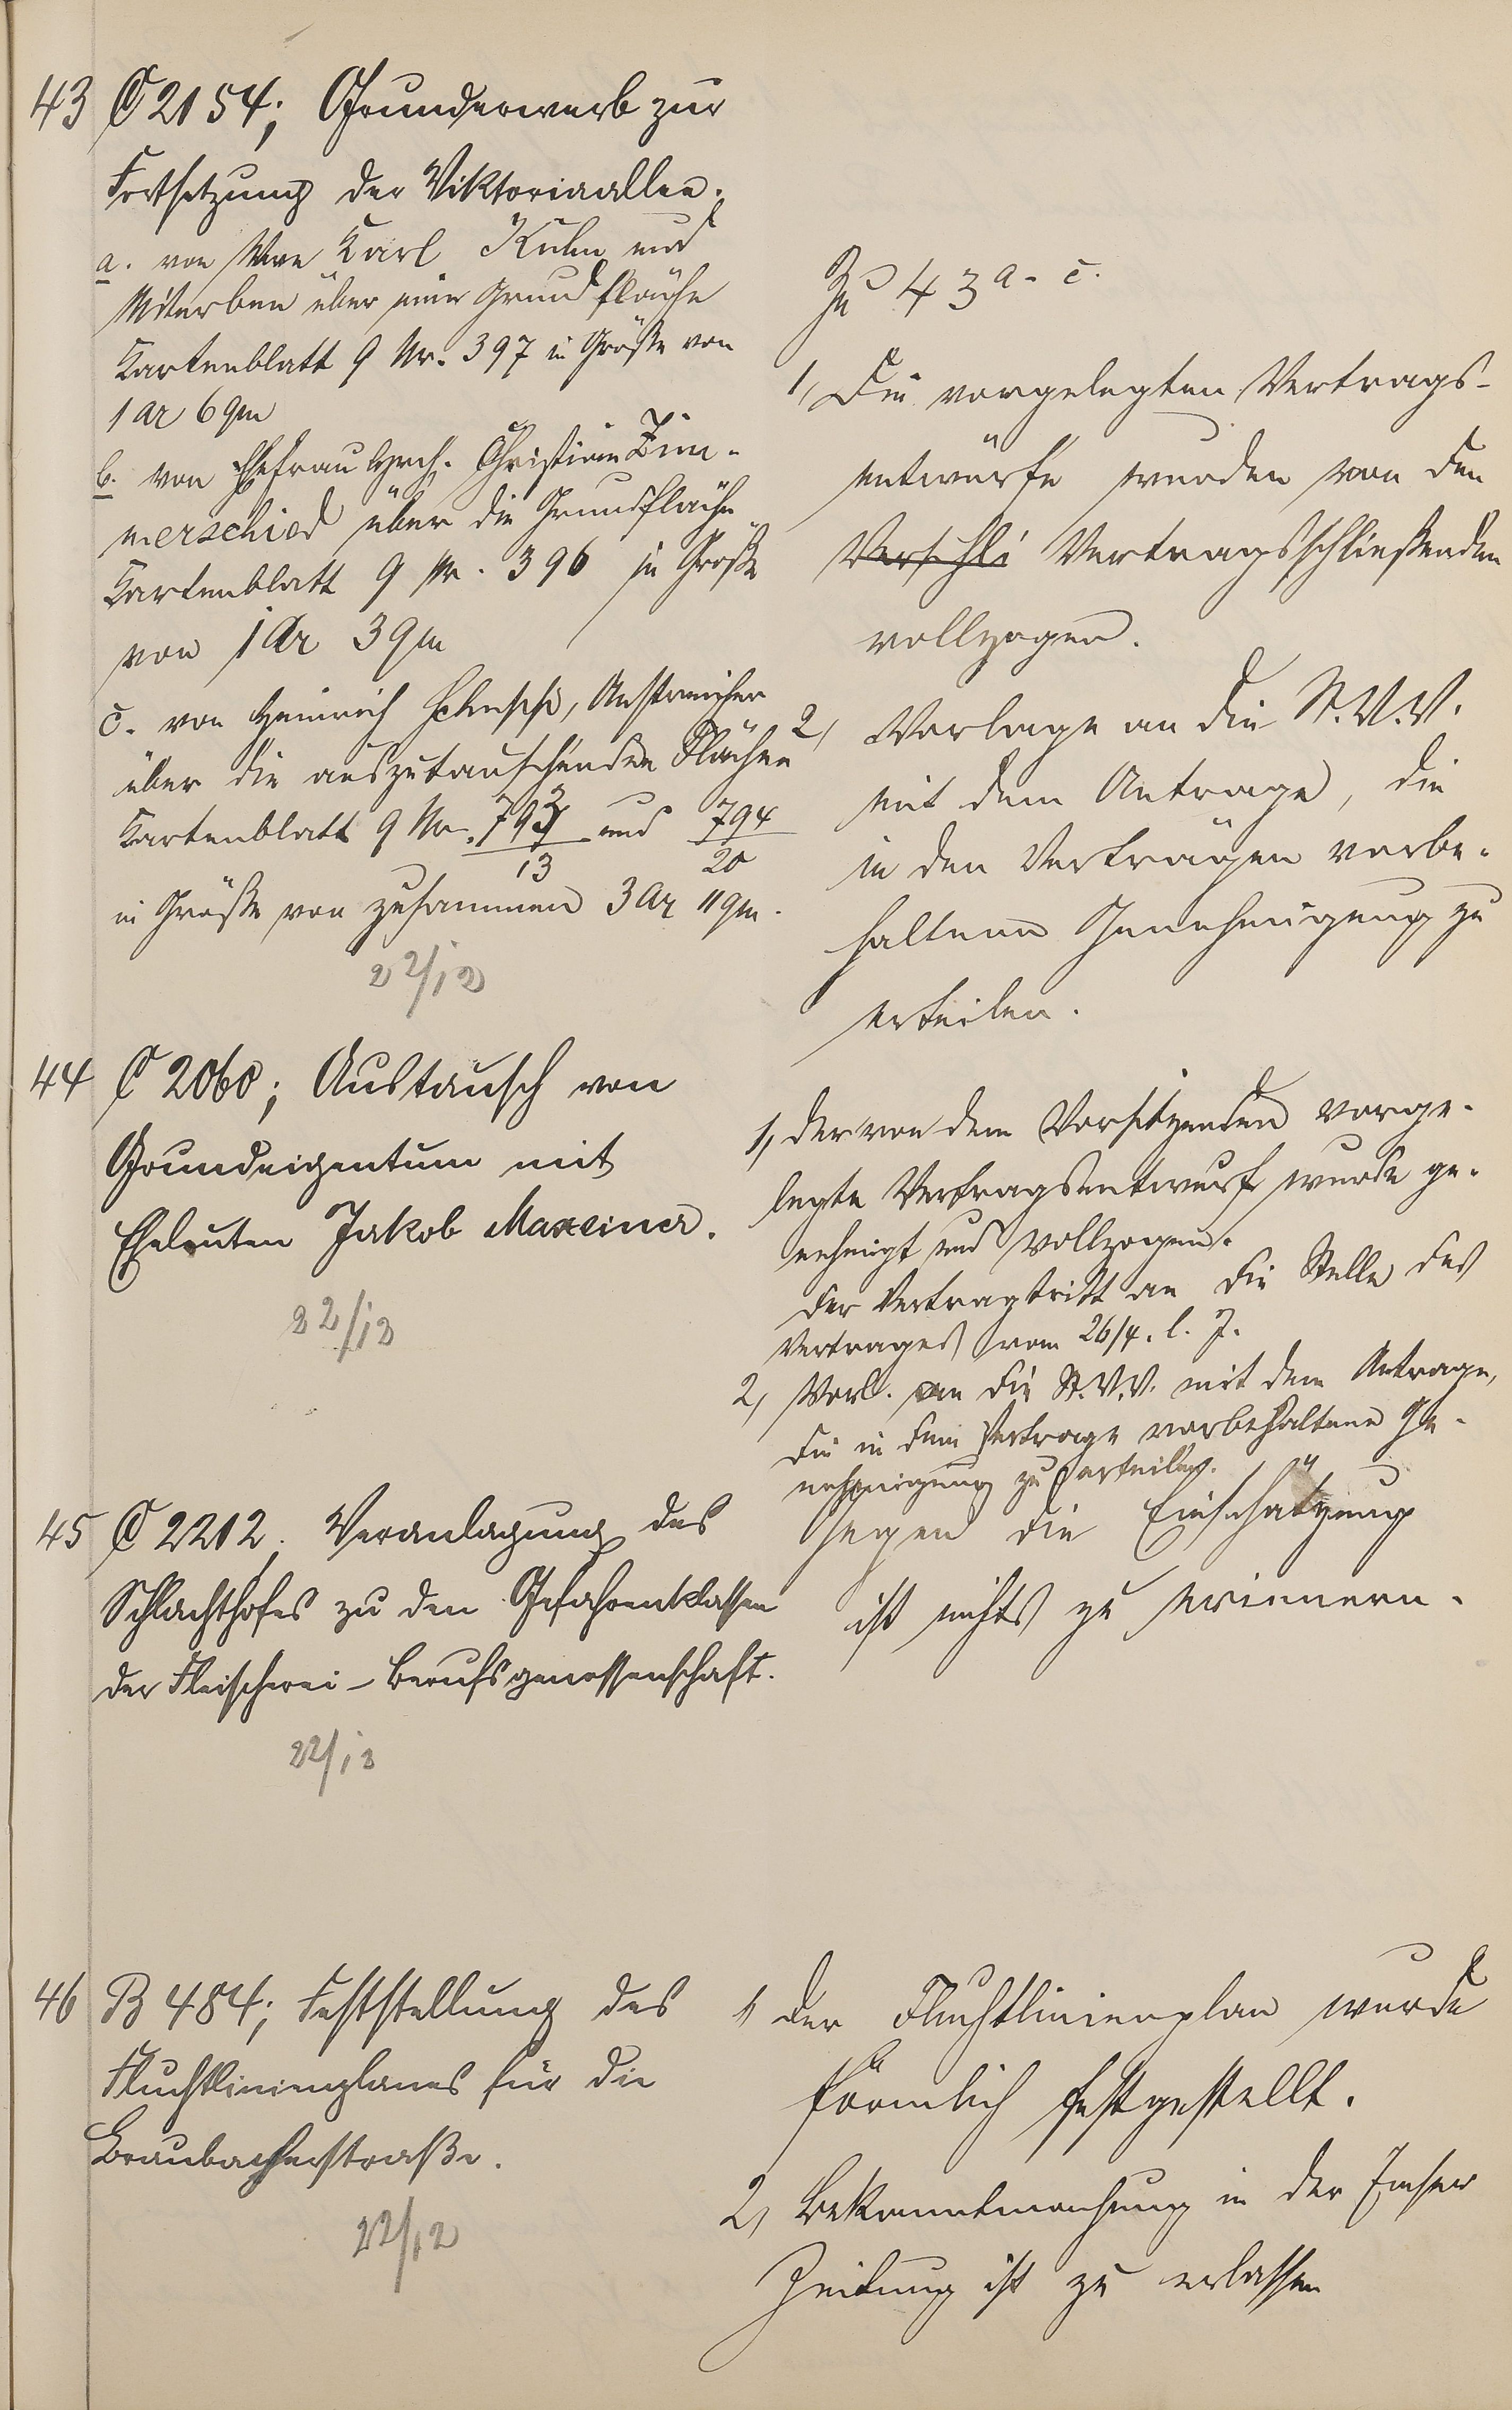 43 C 2154; Grunderwerb zur
Fortsetzung der Viktoriaallee.
a. von Wwe Karl Kuhn und
Miterben über eine Grundfläche
Kartenblatt 9 Nr. 397 in Größe von
1 ar 6 qm
b. von Ehefrau Hrch. Christian Zim-
merschied über die Grundfläche
Kartenblatt 9 Nr. 396 in Größe
von 1 Ar 3 qm
c. von Heinrich Schupp, Anstreicher
über die auszutauschenden Flächen
Kartenblatt 9 Nr. 793/13 und 794/20
in Größe von zusammen 3 Ar 11 qm.
22/12
Zu 43 a-c.
1, Die vorgelegten Vertrags-
entwürfe wurden von den
Verschli Vertragsschließenden
vollzogen.
2, Vorlage an die St.V.V.
mit dem Antrage, die
in den Verträgen vorbe-
haltene Genehmigung zu
erteilen.
44 C 2060; Austausch von
Grundeigentum mit
Eheleuten Jakob Maxeiner.
22/12
1, der von dem Vorsitzenden vorge-
legte Vertragsentwurf wurde ge-
nehmigt und vollzogen.
Der Vertrag tritt an die Stelle des
Vertrages vom 26/4. l. J.
2, Vorl. an die St.V.V. mit dem Antrage,
die in dem Vertrage vorbehaltene Ge-
nehmigung zu erteilen.
45 C 2212. Veranlagung des
Schlachthofes zu den Gefahrenklassen
der Fleischerei-Berufsgenossenschaft.
22/12
Gegen die Einschätzung
ist nichts zu erinnern.
46 B 484; Feststellung des
Fluchtlinienplanes für die
Braubacherstraße.
22/12
1, der Fluchtlinienplan wurde
förmlich festgestellt.
2, Bekanntmachung in der Emser
Zeitung ist zu erlassen